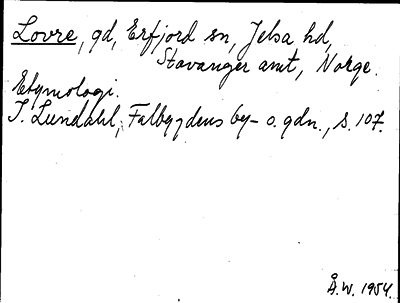 Lovre, gd, Erfjord sn, Jelsa hd,
Stavanger amt, Norge.
Etymologi.
I. Lundahl, Falbygdens by- o. gdn., s. 107.
Å.W. 1954.